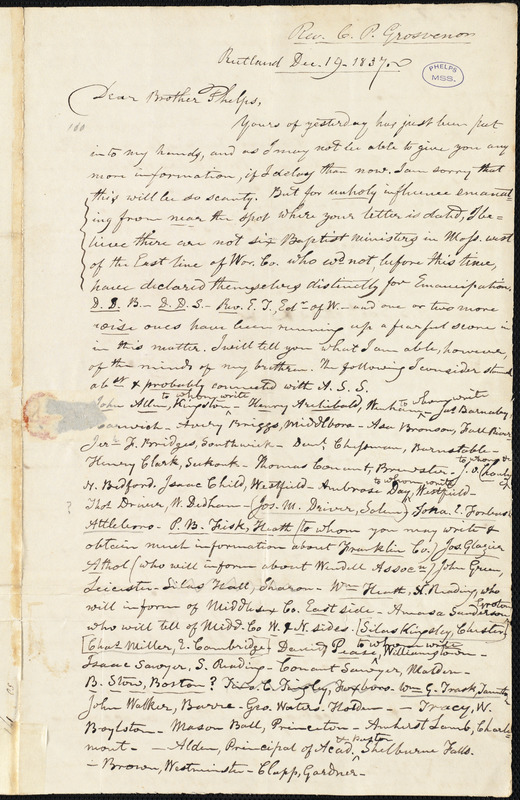 Rev. C. P. Grosvenor
Rutland Dec. 19. 1837.
PHELPS
MSS.
Dear Brother Phelps,
Yours of yesterday has just been put
into my hands, and as I may not be able to give you any
more information, if I delay than now. I am sorry that
this will be so scanty. But for unholy influence emanat-
ing from near the spot where your letter is dated, I be-
lieve there are not six Baptist ministers in Mass. west
of the East line of Wor. Co. who wd not, before this time,
have declared themselves distinctly for Emancipation.
D. D. B. — D. D. S — Rev. E. T., Edr of W. — and one or two more
wise ones have been running up a fearful score in
in this matter. I will tell you what I am able, however,
of the minds of my brethren. The following I consider
abt & probably connected with A. S. S.
John Allen, Kingston to whom write — Henry Archibald, to whom write Jas. Barnaby
Harwich — Avery Briggs, Middleboro — Asa Bronson, Fall River
Jer. F. Bridges, Southwick — Danl. Chessman, Barnstable —
Henry Clark, Seekonk — Thomas Conant, Brewster — J. O.
N. Bedford, Isaac Child, Westfield — Ambrose Day, to whom write Westfield —
Thos. Driver, W. Dedham — (Jos. M. Driver, Salem)
Attleboro — P. B. Fisk, Heath (to whom you may write &
obtain much information about Franklin Co.) Jos. Glazier
Athol (who will inform about Wendell Assocn) John Green,
Leicester — Silas Hall, Sharon — Wm Heath, N. Reading, who
will inform of Middlesex Co. East side — Amasa Sanderson
who will tell of Midd. Co W. & N. sides. [Silas Kingsley, Chester]
[Chas Miller, E. Cambridge] Daniel Pease, Williamstown —
Isaac Sawyer, S. Reading — Conant Sawyer, Malden —
B. Stow, Boston? Timo. C. Tingley, Foxboro — Wm G. Trask, Taunton
John Walker, Barre — Geo. Waters, Holden — — Tracy, W.
Boylston — Mason Ball, Princeton — Amherst Lamb, Charle-
mont — — Alden, Principal of Acad. Shelburne Falls.
— Brown, Westminster — Clapp, Gardner —